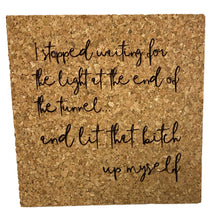 I stopped waiting for
the light at the end of
the tunnel...
and lit that bitch
up myself